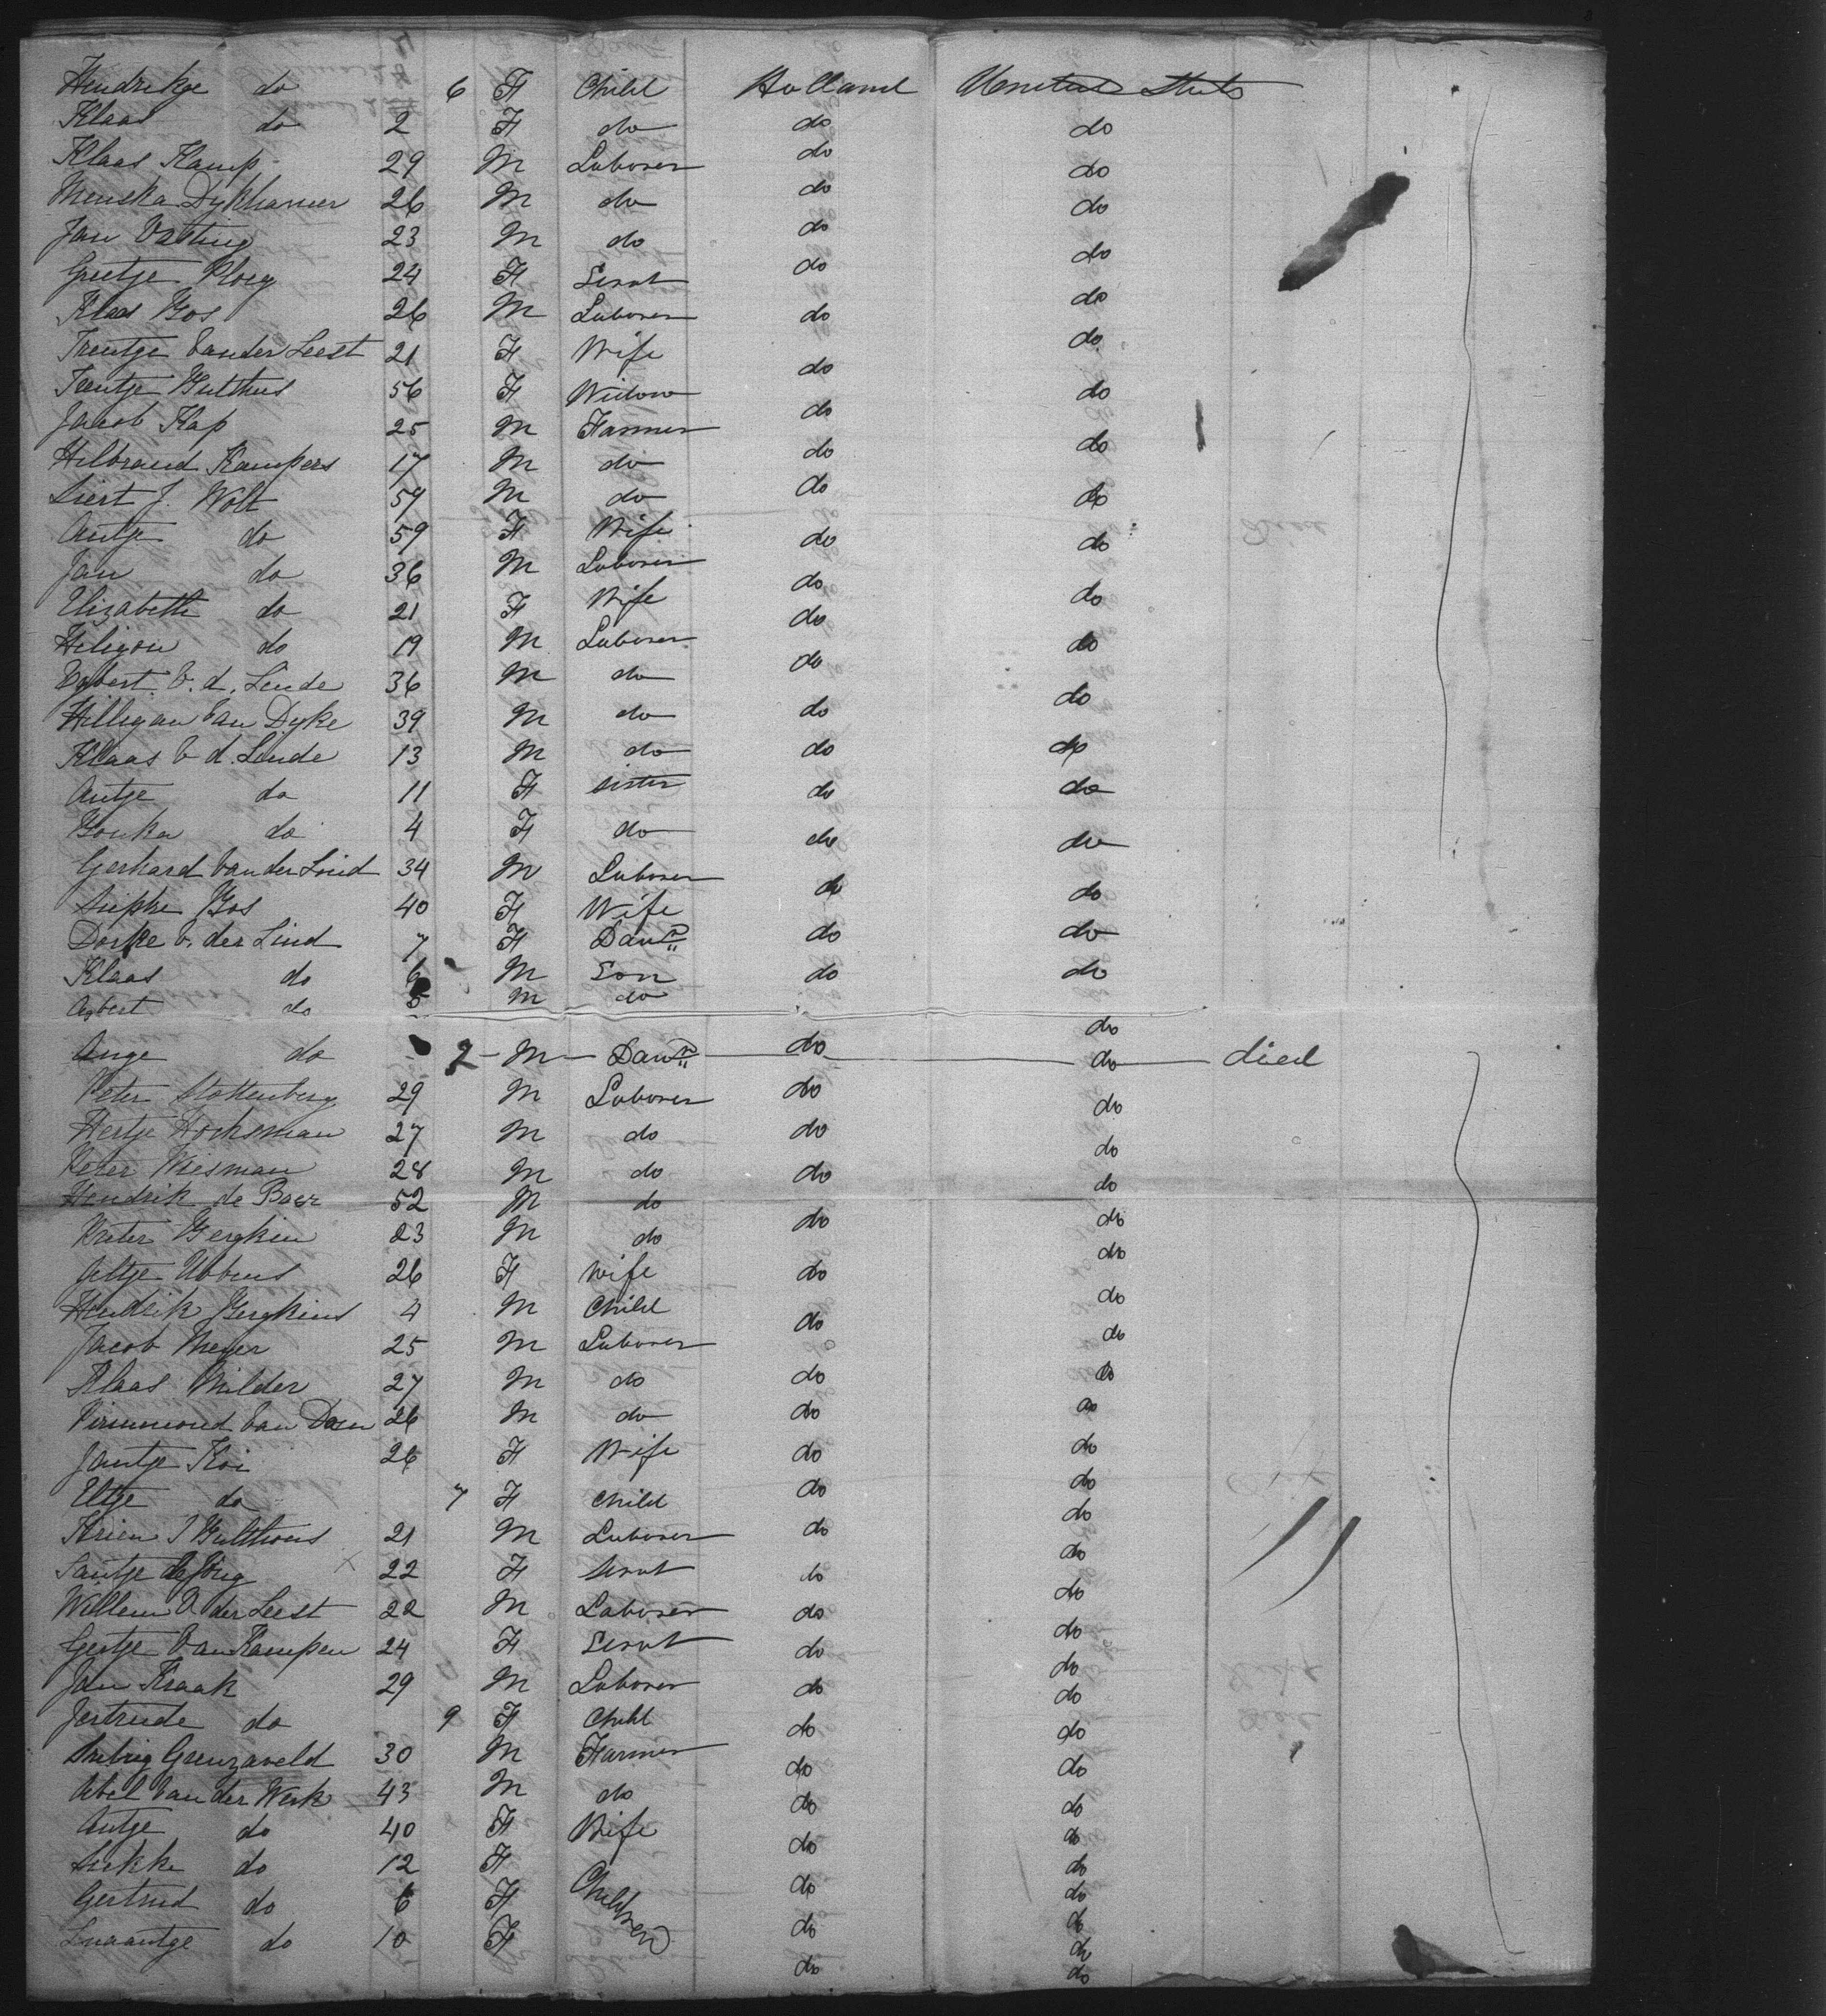 Hendrikge do 6 F Child Holland United Stats
Klaas do 2 F do do do
Klaas Kamp 29 M Laborer do do
Menska Dykhamer 26 M do do do
Jan Vasting 23 M do do do
Geetje Ploeg 24 F Servt do do
Klaas Bos 26 M Laborer do do
Trentge Van der Leest 21 F Wife do do
Jantje Bulthus 56 F Widow do do
Jacob Kap 25 M Farmer do do
Hilbrand Kampers 17 M do do do
Siert J. Wolt 59 M do do do
Antje do 59 F Wife do do
Jan do 36 M Laborer do do
Elizabeth do 21 F Wife do do
Heligon do 19 M Laborer do do
Egbert V. d. Linde 36 M do do do
Hilligan Van Dyke 39 M do do do
Klaas V d. Linde 13 M do do do
Antje do 11 F sister do do
Bonka do 4 F do do do
Gerhard Van der Lind 34 M Laborer do do
Siepke Bos 40 F Wife do do
Dorfke V. der Lind 7 F Daur do do
Klaas do 6 M Son do do
Agbert do 5 M do do
Ange do 2 M Daur do do died
Peter Stottenberg 29 M Laborer do do
Hertje Hocksman 27 M do do do
Peter Wiesman 28 M do do do
Hendrik de Boer 52 M do do
Pieter Bergkien 23 M do do do
Jeltje Ubbens 26 F wife do do
Hendrik Bergkiens 4 M Child do do
Jacob Meyer 25 M Laborer do do
Klaas Milder 27 M do do do
Pirummond Van Dam 26 M do do do
Jantje Koi 26 F Wife do do
Eltje do 7 F Child do do
Krien J Bulthous 21 M Laborer do do
Jantje de Jong x 22 F Servt do do
Willem V der Leest 22 M Laborer do do
Gertje Van Kampen 24 F Servt do do
Jan Kraak 29 M Laborer do do
Jertrude do 9 F Child do do
Grenzaveld 30 M Farmer do do
Abel Van der Werk 43 M do do do
Antje do 40 F Wife do do
Siekke do 12 F Children do do
Gertrud do 6 F do do
do 10 F do do